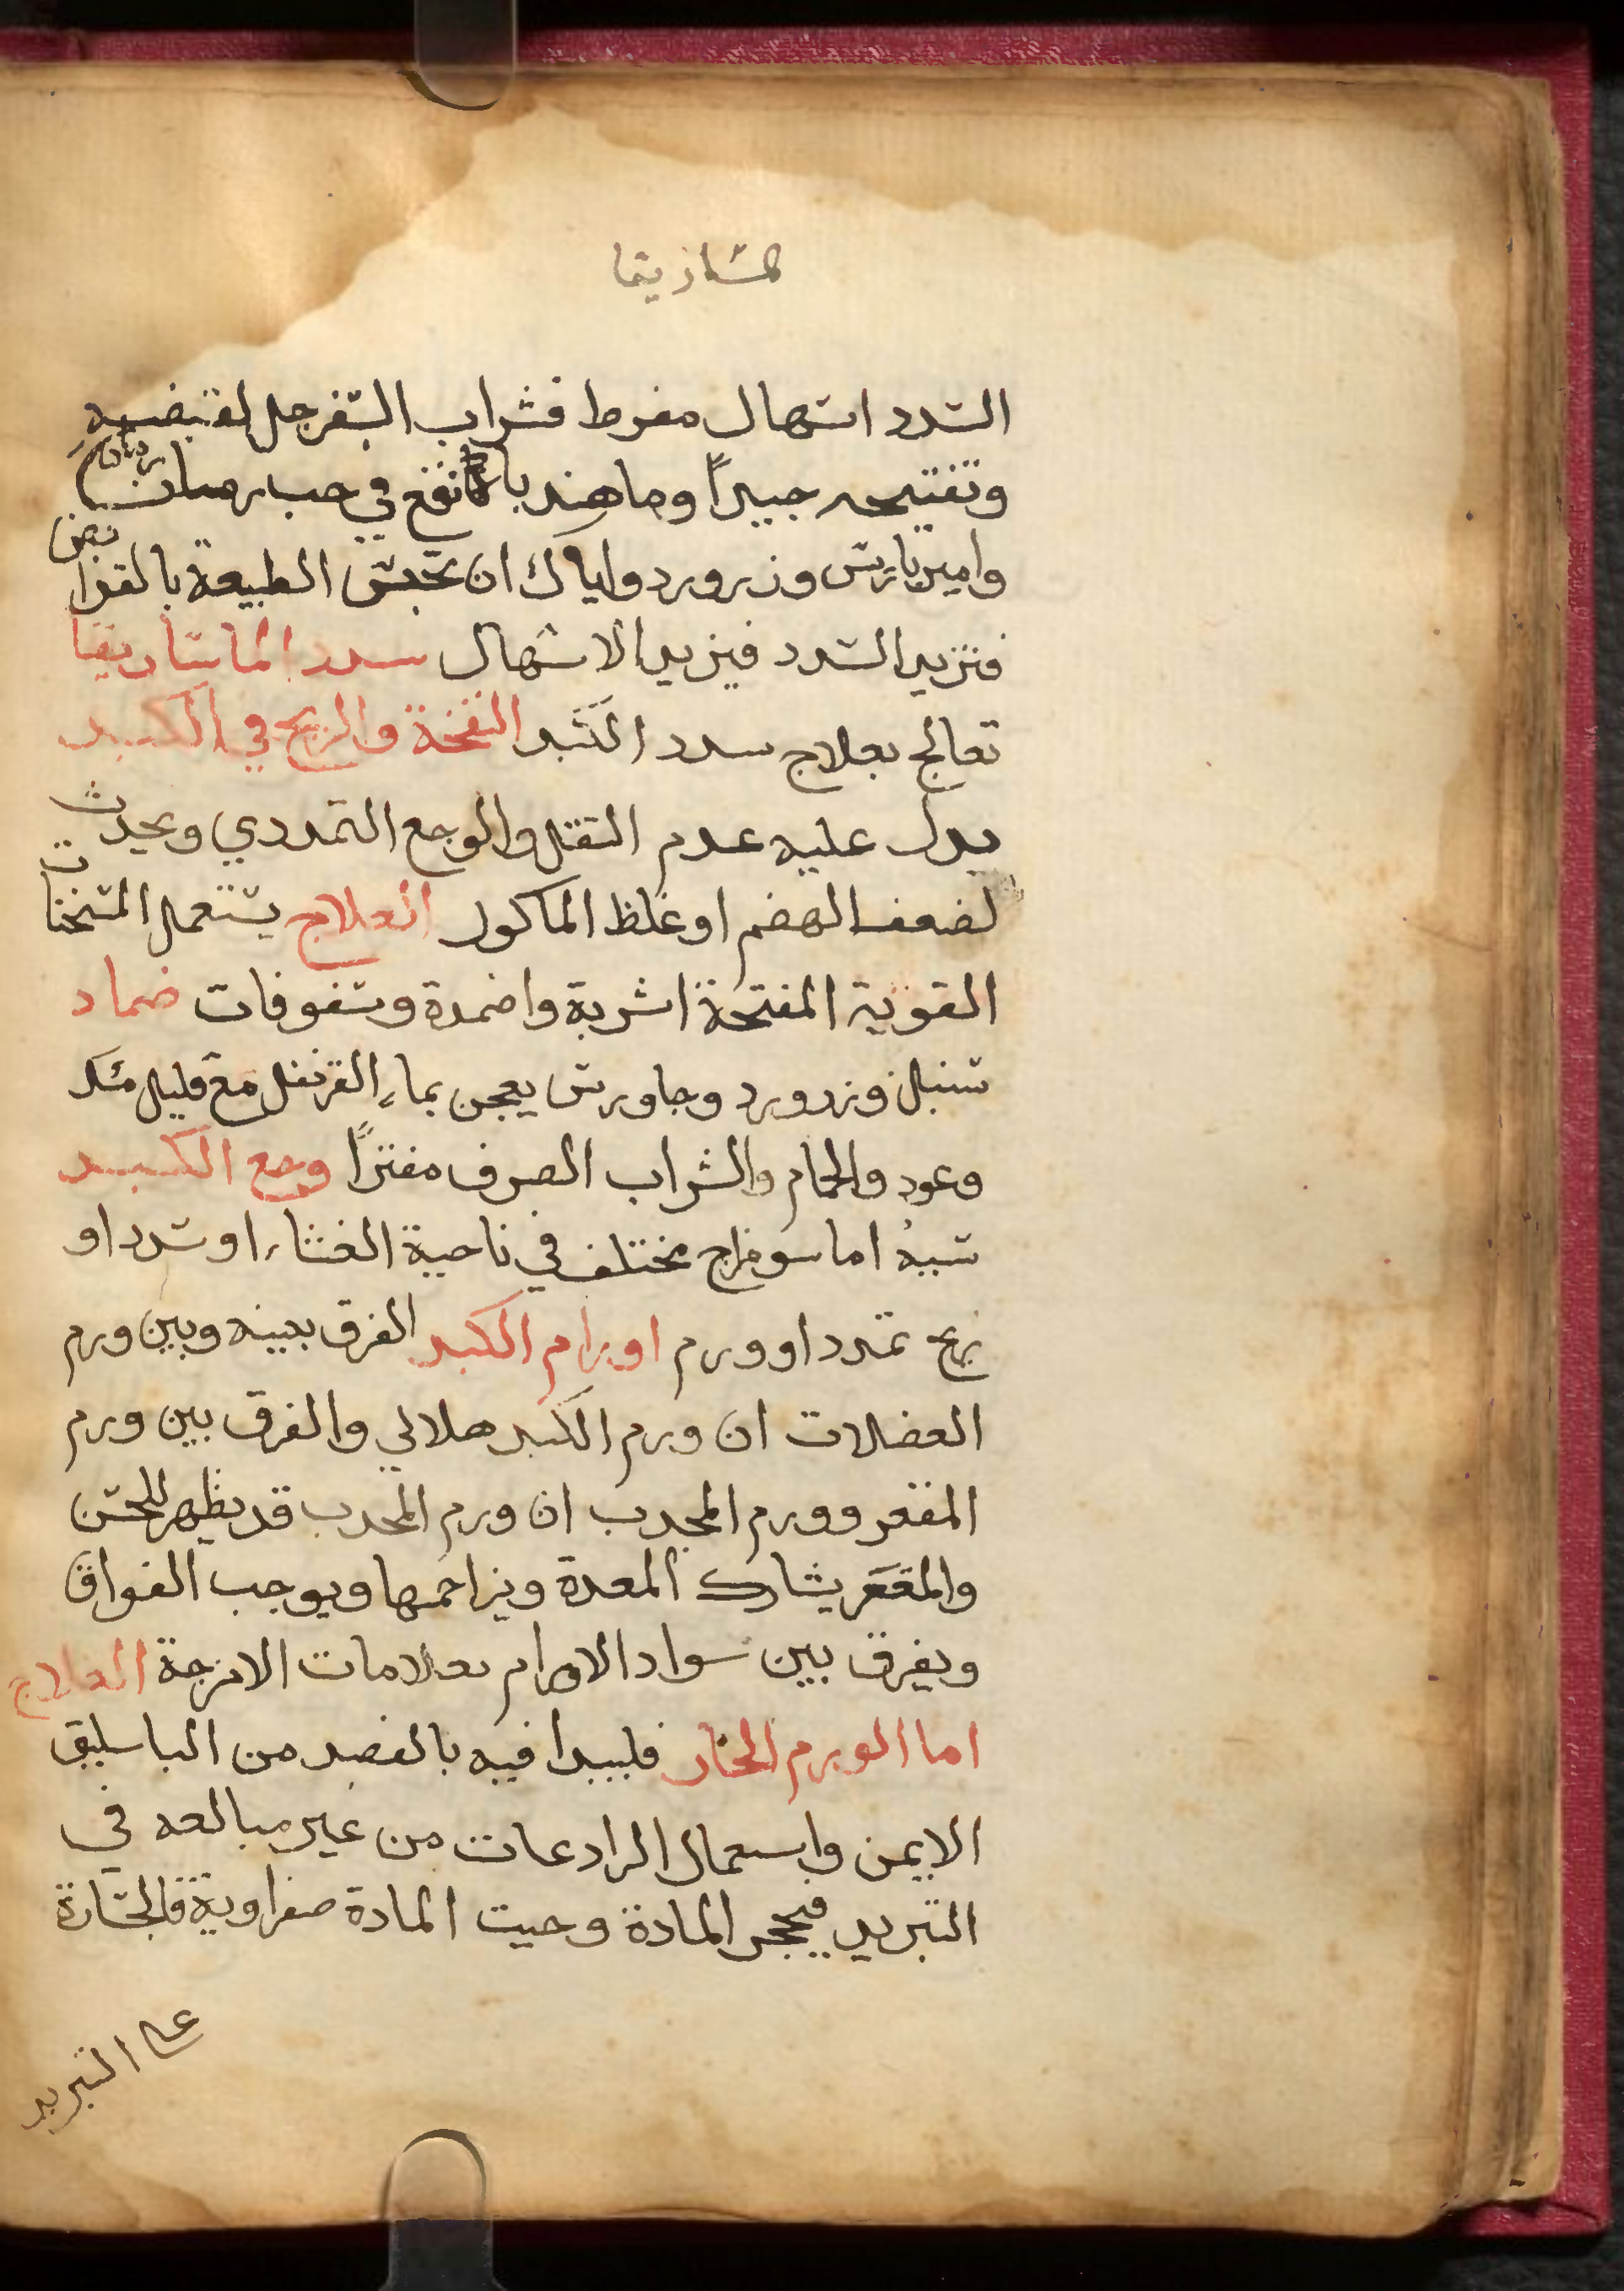 السدد اسهال مفرط فشراب السفرجل لقبضه
وتفتيحه جيداً وما هندبا نقع في حب رمان
وامير باريس وزرورد واياك ان تحبس الطبيعة بالقوابض
فتزيد السدد فيزيد الاسهال سدد الماساريقا
تعالج بعلاج سدد الكبد النفخة والريح في الكبد
يدل عليه عدم الثقل والوجع التمددي ويحدث
لضعف الهضم او غلظ الماكول العلاج يستعمل المسخنات
القوية المفتحة اشربة واضمدة وسفوفات ضماد
سنبل وزرورد وجاورس يعجن بماء القرنفل مع قليل مسك
وعود والحمام والشراب الصرف مفتراً وجع الكبد
سببه اما سو مزاج مختلف في ناحية الغشاء او سدد او
ريح تمدد او ورم اورام الكبد الفرق بينه وبين ورم
العضلات ان ورم الكبد هلالي والفرق بين ورم
المقعر وورم المحدب ان ورم المحدب قد يظهر للحس
والمقعر يشارك المعدة ويزاحمها ويوجب الفواق
ويفرق بين سواد الاورام بعلامات الامزجة العلاج
اما الورم الحار فليبدا فيه بالفصد من الباسليق
الايمن واستعمال الرادعات من غير مبالغه في
التبريد فيحجر المادة وحيث المادة صفراوية فالجسارة
على التبريد